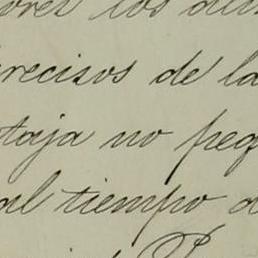 ores los
recisos de la
taja no peq
al tiempo d